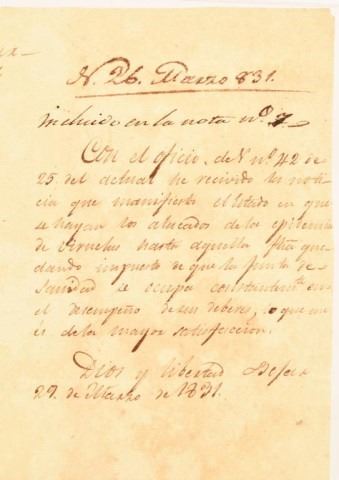 N. 26. Marzo 831.
incluido en la nota nº. 7
Con el oficio de V. nº. 42 de
25. del actual he recivido la noti-
cia que manifiesta el Estado en que
se hayan los atacados de la epidemia
de viruelas hasta aquella fha que-
dando impuesto de que la Junta de
Sanidad se ocupa constantemte. en
el desempeño de sus deberes, lo que me
es de la mayor satisfaccion.
Dios y libertad Bejar
29. de Marzo de 1831.